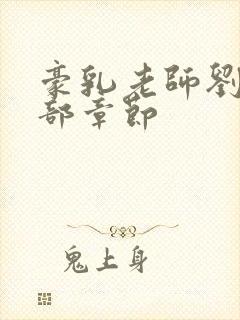 豪乳老師劉
部章節
鬼上身